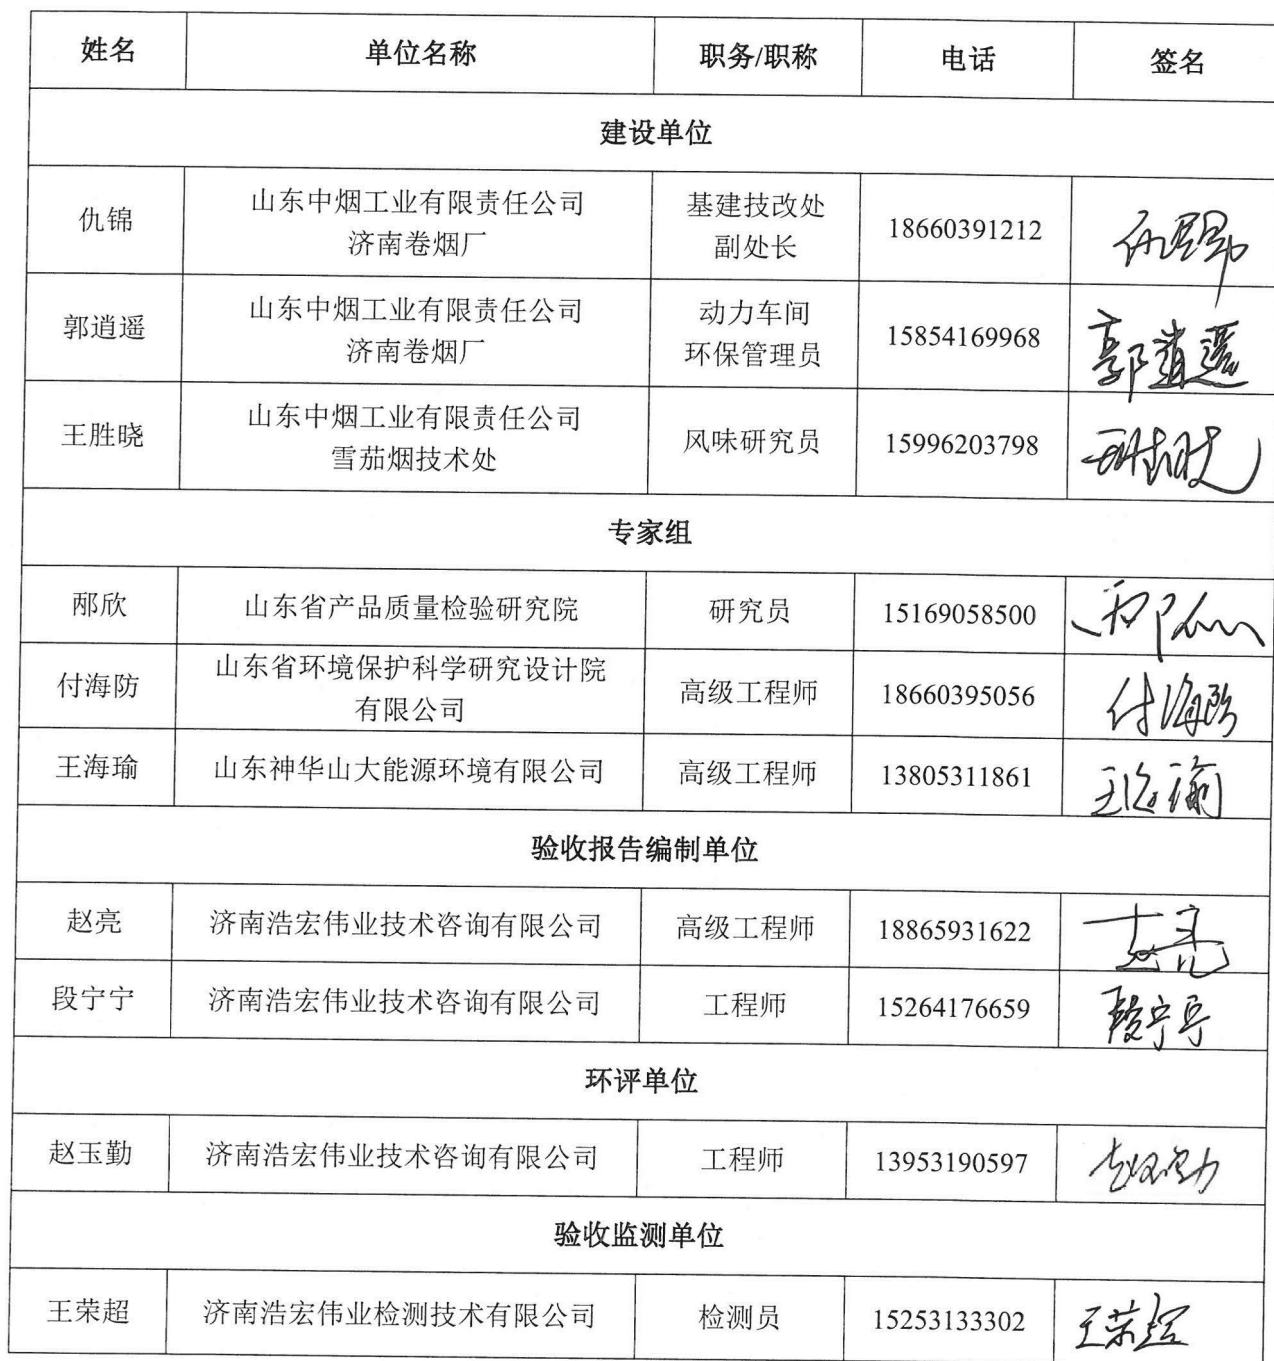 姓名 单位名称 职务/职称 电话 签名
建设单位
仇锦 山东中烟工业有限责任公司 济南卷烟厂 基建技改处 副处长 18660391212 仇锦
郭逍遥 山东中烟工业有限责任公司 济南卷烟厂 动力车间 环保管理员 15854169968 郭逍遥
王胜晓 山东中烟工业有限责任公司 雪茄烟技术处 风味研究员 15996203798
专家组
邴欣 山东省产品质量检验研究院 研究员 15169058500 邴欣
付海防 山东省环境保护科学研究设计院 有限公司 高级工程师 18660395056 付海防
王海瑜 山东神华山大能源环境有限公司 高级工程师 13805311861 王海瑜
验收报告编制单位
赵亮 济南浩宏伟业技术咨询有限公司 高级工程师 18865931622 赵亮
段宁宁 济南浩宏伟业技术咨询有限公司 工程师 15264176659 段宁宁
环评单位
赵玉勤 济南浩宏伟业技术咨询有限公司 工程师 13953190597
验收监测单位
王荣超 济南浩宏伟业检测技术有限公司 检测员 15253133302 王荣超